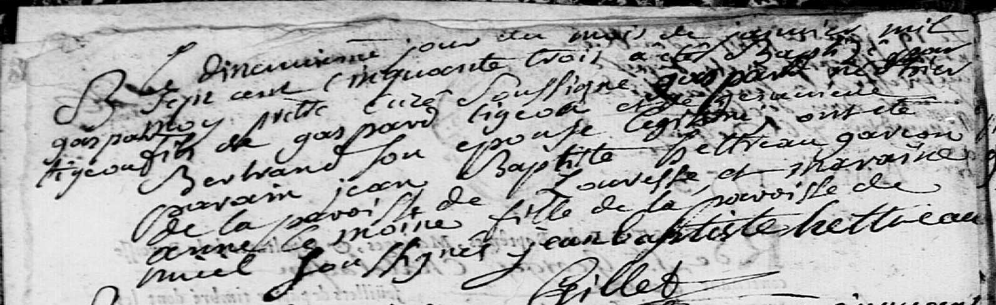 Le dineuvieme jour du mois de janvier mil
B. Sept cent cinquante trois a été Baptisé par
gaspard prêtre curé Soussigné gaspard né d'hier
tigeou fils de gaspard tigeou et de
Bertrand son epouse legitime, ont été
parain jean Baptiste hettreau garcon
de la paroisse de Louresse et maraine
anne le moine fille de la paroisse de
miel soussignés jean baptiste hettreau
Gillet